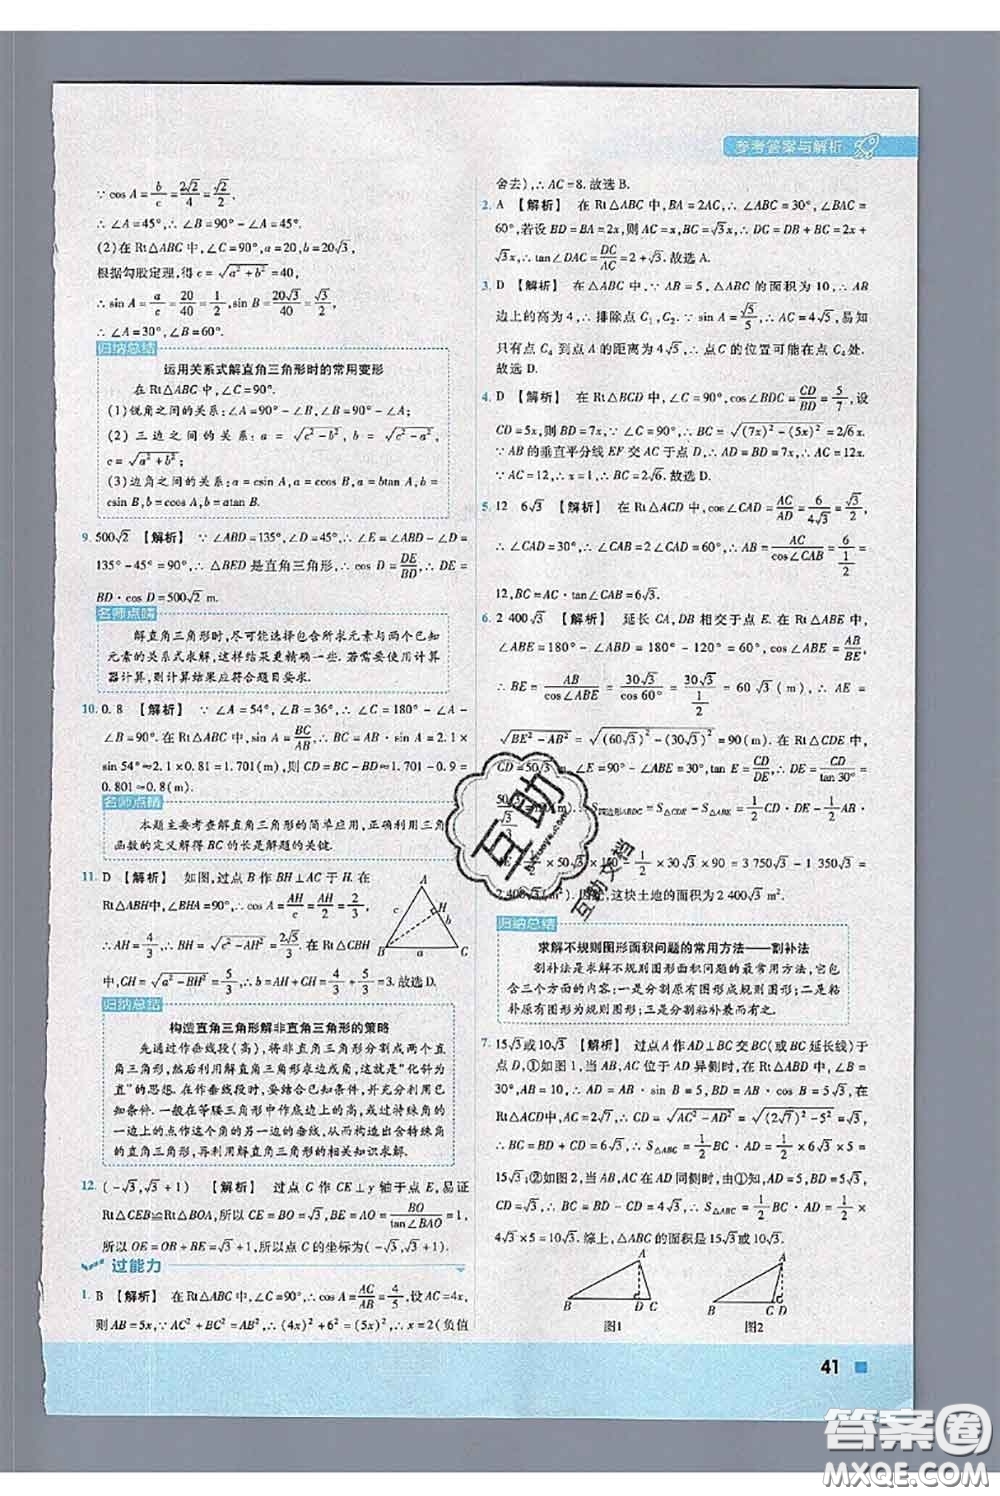 参考答案与解析
∵ cos A = b/c = 2√2/4 = √2/2,
∴ ∠A=45°,∴ ∠B=90°-∠A=45°.
(2)在 Rt△ABC 中,∠C=90°,a=20,b=20√3,
根据勾股定理,得 c=√(a²+b²)=40,
∴ sin A = a/c = 20/40 = 1/2, sin B = 20√3/40 = √3/2,
∴ ∠A=30°,∠B=60°.
归纳总结
运用关系式解直角三角形时的常用变形
在 Rt△ABC 中,∠C=90°.
(1)锐角之间的关系:∠A=90°-∠B,∠B=90°-∠A;
(2)三边之间的关系: a = √(c²-b²), b = √(c²-a²),
c=√(a²+b²);
(3)边角之间的关系:a=csin A,a=bcos B,a=btan A,b=
csin B,b=ccos A,b=atan B.
9. 500√2 【解析】 ∵ ∠ABD=135°,∠D=45°,∴ ∠E=∠ABD-∠D=
135°-45°=90°,∴ △BED 是直角三角形,∴ cos D = DE/BD,∴ DE=
BD·cos D=500√2 m.
名师点睛
解直角三角形时,尽可能选择包含所求元素与两个已知
元素的关系式求解,这样结果更精确一些.若需要使用计算
器计算,则计算结果应符合题目要求.
10. 0.8 【解析】 ∵ ∠A=54°,∠B=36°,∴ ∠C=180°-∠A-
∠B=90°.在 Rt△ABC 中,sin A = BC/AB,∴ BC=AB·sin A=2.1×
sin 54°≈2.1×0.81=1.701(m),则 CD=BC-BD≈1.701-0.9=
0.801≈0.8(m).
名师点睛
本题主要考查解直角三角形的简单应用,正确利用三角
函数的定义解得 BC 的长是解题的关键.
11. D 【解析】 如图,过点 B 作 BH⊥AC 于 H.在
Rt△ABH 中,∠BHA=90°,∴ cos A = AH/c = AH/2 = 2/3,
∴ AH = 4/3,∴ BH = √(c²-AH²) = 2√5/3.在 Rt△CBH
中,CH = √(a²-BH²) = 5/3,∴ b=AH+CH = 4/3 + 5/3 = 3.故选 D.
A
H
c
b
B
a
C
归纳总结
构造直角三角形解非直角三角形的策略
先通过作垂线段(高),将非直角三角形分割成两个直
角三角形,然后利用解直角三角形的知识.这是"化斜为
直"的思想.在作垂线段时,要结合已知条件,并充分利用已
知条件.一般在等腰三角形中作底边上的高,或过特殊角的
一边上的点作这个角的另一边的垂线,从而构造出含特殊角
的直角三角形,再利用解直角三角形的相关知识求解.
12. (-√3,√3+1) 【解析】 过点 C 作 CE⊥y 轴于点 E,易证
Rt△CEB≌Rt△BOA,所以 CE=BO=√3,BE=AO = BO/tan∠BAO = 1,
所以 OE=OB+BE=√3+1,所以点 C 的坐标为(-√3,√3+1).
过能力
1. B 【解析】 在 Rt△ABC 中,∠C=90°,∴ cos A = AC/AB = 4/5,设 AC=4x,
则 AB=5x,∵ AC²+BC²=AB²,∴ (4x)²+6²=(5x)²,∴ x=2(负值
舍去),∴ AC=8.故选 B.
2. A 【解析】 在 Rt△ABC 中,BA=2AC,∴ ∠ABC=30°,∠BAC=
60°,若设 BD=BA=2x,则 AC=x,BC=√3x,∴ DC=DB+BC=2x+
√3x,∴ tan∠DAC = DC/AC = 2+√3.故选 A.
3. D 【解析】 在△ABC 中,∵ AB=5,△ABC 的面积为 10,∴ AB
边上的高为 4,∴ 排除点 C₁,C₂.∵ sin A = √5/5,∴ AC=4√5,易知
只有点 C₄ 到点 A 的距离为 4√5,∴ 点 C 的位置可能在点 C₄ 处.
故选 D.
4. D 【解析】 在 Rt△BCD 中,∠C=90°,cos∠BDC = CD/BD = 5/7,设
CD=5x,则 BD=7x,∴ BC=√((7x)²-(5x)²)=2√6x.
∵ AB 的垂直平分线 EF 交 AC 于点 D,∴ AD=BD=7x,∴ AC=12x.
∵ AC=12,∴ x=1,∴ BC=2√6.故选 D.
5. 12 6√3 【解析】 在 Rt△ACD 中,cos∠CAD = AC/AD = 6/4√3 = √3/2,
∴ ∠CAD=30°,∴ ∠CAB=2∠CAD=60°,∴ AB = AC/cos∠CAB = 6/(1/2) =
12,BC=AC·tan∠CAB=6√3.
6. 2 400√3 【解析】 延长 CA,DB 相交于点 E.在 Rt△ABE 中,
∠ABE=180°-∠ABD=180°-120°=60°,∵ cos∠ABE = AB/BE,
∴ BE = AB/cos∠ABE = 30√3/cos 60° = 30√3/(1/2) = 60√3(m),∴ AE=
√(BE²-AB²)=√((60√3)²-(30√3)²)=90(m).在 Rt△CDE 中,
CD=50√3 m,∠E=90°-∠ABE=30°,∵ tan E = CD/DE,∴ DE = CD/tan 30° =
50√3/(√3/3) S四边形ABDC=S△CDE-S△ABE = 1/2 DE·CD - 1/2 AB·
AE = 1/2 × 50√3 × 150 - 1/2 × 30√3 × 90 = 3 750√3 - 1 350√3 =
2 400√3(m²).因此,这块土地的面积为 2 400√3 m².
归纳总结
求解不规则图形面积问题的常用方法——割补法
割补法是求解不规则图形面积问题的最常用方法,它包
含三个方面的内容:一是分割原有图形成规则图形;二是粘
补原有图形为规则图形;三是分割粘补兼而有之.
7. 15√3或10√3 【解析】 过点 A 作 AD⊥BC 交 BC(或 BC 延长线)于
点 D,①如图 1,当 AB,AC 位于 AD 异侧时,在 Rt△ABD 中,∠B=
30°,AB=10,∴ AD=AB·sin B=5,BD=AB·cos B=5√3.在
Rt△ACD中,AC=2√7,∴ CD = √(AC²-AD²) = √((2√7)²-5²) = √3,
∴ BC=BD+CD=6√3,∴ S△ABC = 1/2 BC·AD = 1/2 × 6√3 × 5 =
15√3;②如图 2,当 AB,AC 在 AD 同侧时,由①知,BD=5√3,
CD=√3,∴ BC=BD-CD=4√3,∴ S△ABC = 1/2 BC·AD = 1/2 ×
4√3×5=10√3.综上,△ABC 的面积是 15√3 或 10√3.
A
B
D C
图1
A
B
C D
图2
41
互助
互助文档
答案圈
MXQE.COM